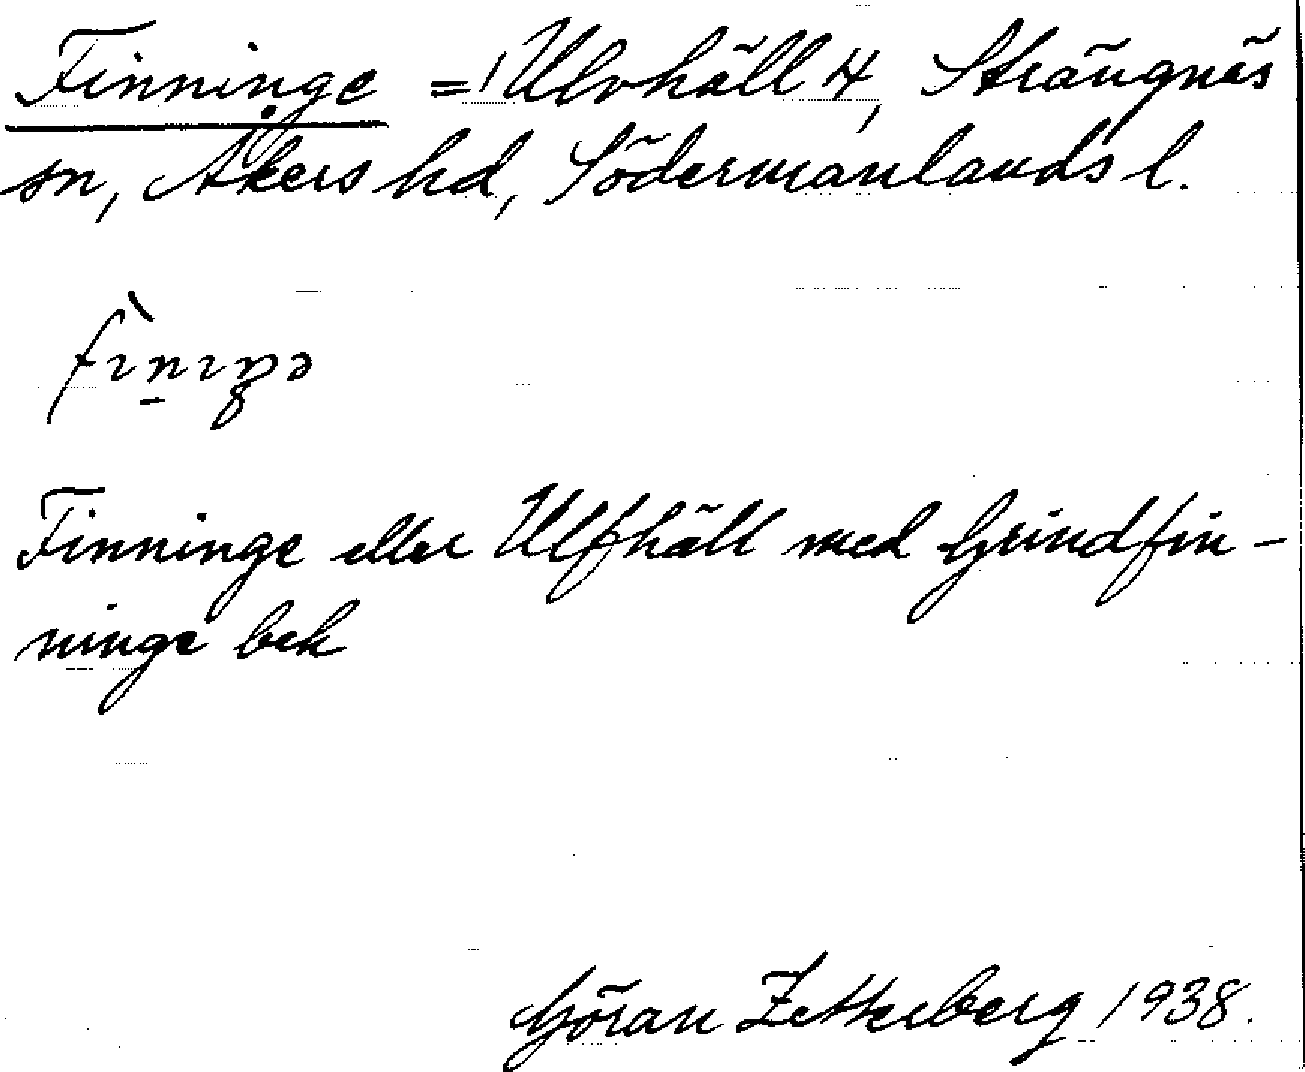 Finninge = Ulvhäll 4, Strängnäs
sn, Åkers hd, Södermanlands l.
Finninge eller Ulfhäll med Grindfin-
ninge bek
Göran Zetterberg 1938.